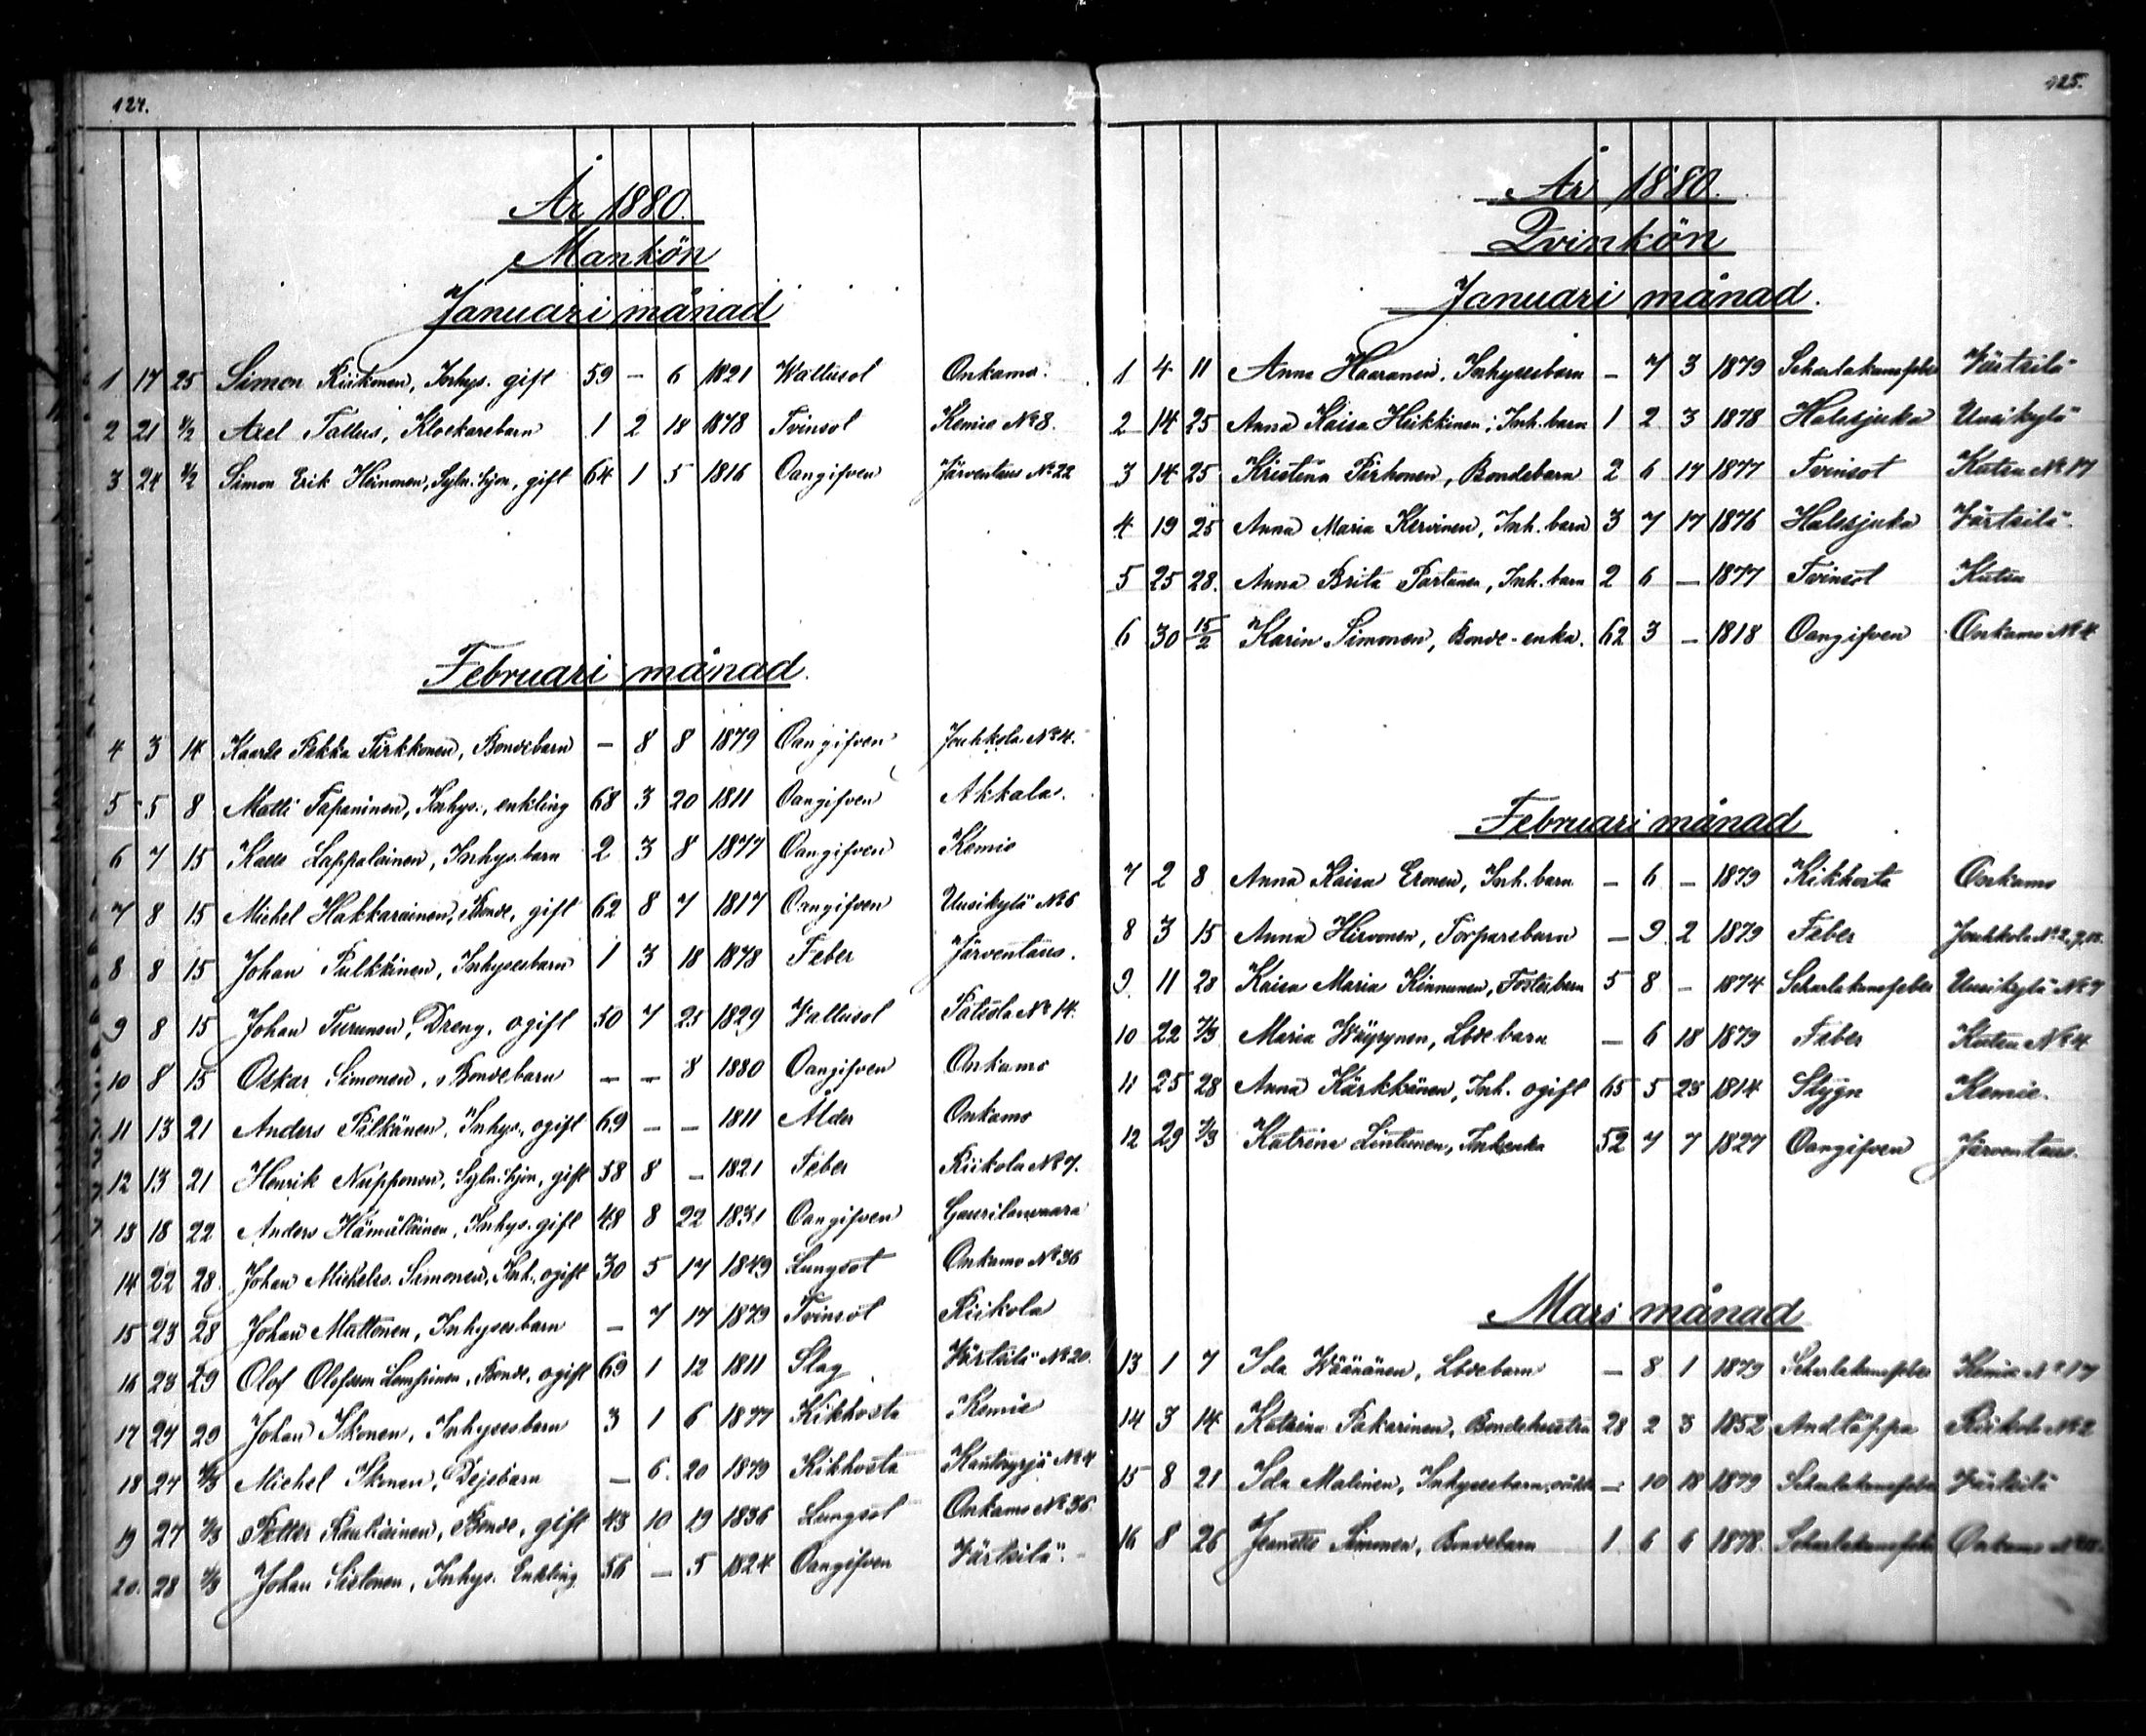 124.
År 1880.
Mankön
Januari månad
1 17 25 Simon Riikonen, Inhys. gift 59 — 6 1821 Wattusot Onkamo.
2 21 1/2 Axel Tallus, Klockarebarn 1 2 18 1878 Tvinsot Kemie No 8.
3 24 1/2 Simon Erik Heinonen, Sytn. hjon, gift 64 1 5 1816 Oangifven Järventaus No 22
Februari månad.
4 3 14 Kaarle Pekka Pirkkonen, Bondebarn — 8 8 1879 Oangifven Jouhkola No 4.
5 5 8 Matti Tapaninen, Inhys., enkling 68 3 20 1811 Oangifven Akkala.
6 7 15 Lappalainen, Inhys. barn 2 3 8 1877 Oangifven Kemie
7 8 15 Michel Hakkarainen, Bonde, gift 62 8 7 1817 Oangifven Uusikylä No 6
8 8 15 Johan Pulkkinen, Inhysesbarn 1 3 18 1878 Feber Järventaus.
9 8 15 Johan Turunen, Dreng, ogift 50 7 25 1829 Vattusot Patsola No 14.
10 8 15 Oskar Simonen, Bondebarn — — 8 1880 Oangifven Onkamo
11 13 21 Anders Pälkänen, Inhys., ogift 69 — — 1811 Ålder Onkamo
12 13 21 Henrik Nupponen, Sytn. hjon, gift 58 8 — 1821 Feber Riikola No 7.
13 18 22 Anders Hämäläinen, Inhys. gift 48 8 22 1831 Oangifven Gaurilanvaara
14 22 28 Johan Michelss. Simonen, Inh., ogift 30 5 17 1849 Lungsot Onkamo No 36
15 23 28 Johan Mattonen, Inhysesbarn — 7 17 1879 Tvinsot Riikola
16 23 29 Olof Olofsson, Bonde, ogift 69 1 12 1811 Slag Värtsilä No 20.
17 27 29 Johan Ikonen, Inhysesbarn 3 1 6 1877 Kikhosta Kemie
18 27 Michel Ikonen, Dejebarn — 6 20 1879 Kikhosta No 4
19 27 7/3 Petter Rautiainen, Bonde, gift 43 10 19 1836 Lungsot Onkamo No 36.
20. 28 Johan Sistonen, Inhys. Enkling 56 — 5 1824 Oangifven Värtsilä.
125.
År 1880.
Qvinkön
Januari månad.
1 4 11 Anna Haaranen, Inhysesbarn — 7 3 1879 Scharlakansfeber Värtsilä
2 14 25 Anna Kaisa Heikkinen, Inh. barn 1 2 3 1878 Halssjuka Uusikylä
3 14 25 Kristina Pirhonen, Bondebarn 2 6 17 1877 Tvinsot Kutsu No 17
4 19 25 Anna Maria Kervinen, Inh. barn 3 7 17 1876 Halssjuka Värtsilä.
5 25 28. Anna Brita Partanen, Inh. barn 2 6 — 1877 Tvinsot Kutsu
6 30 15/2 Karin Simonen, Bonde-enka. 62 3 — 1818 Oangifven Onkamo No 4
Februari månad
7 2 8 Anna Kaisa Eronen, Inh. barn — 6 — 1879 Kikhosta Onkamo
8 3 15 Anna Hirvonen, Torparebarn — 9 2 1879 Feber Jouhkola No 2
9. 11 28 Kaisa Maria Kinnunen, Fosterbarn 5 8 — 1874 Scharlakansfeber Uusikylä No 7
10 22 7/3 Maria Wäyrynen, Lbdebarn — 6 18 1879 Feber Kutsu No 4
11 25 28 Anna Kärkkänen, Inh. ogift 65 5 23 1814 Stygn Kemie.
12 29 7/3 Katrina Lintunen, Inh. enka 52 7 7 1827 Oangifven Järventaus.
Mars månad
13 1 7 Ida Wäänänen, Lbdebarn — 8 1 1879 Scharlakansfeber Kemie No 17
14 3 14 Katrina Pakarinen, Bondehustru 28 2 3 1852 Andtäppa Riikola No 2
15 8 21 Ida Malinen, Inhysesbarn, oäkta — 10 18 1879 Scharlakansfeber Värtsilä
16 8 26 Jeanette Simonen, Bondebarn 1. 6 6 1878. Scharlakansfeber Onkamo